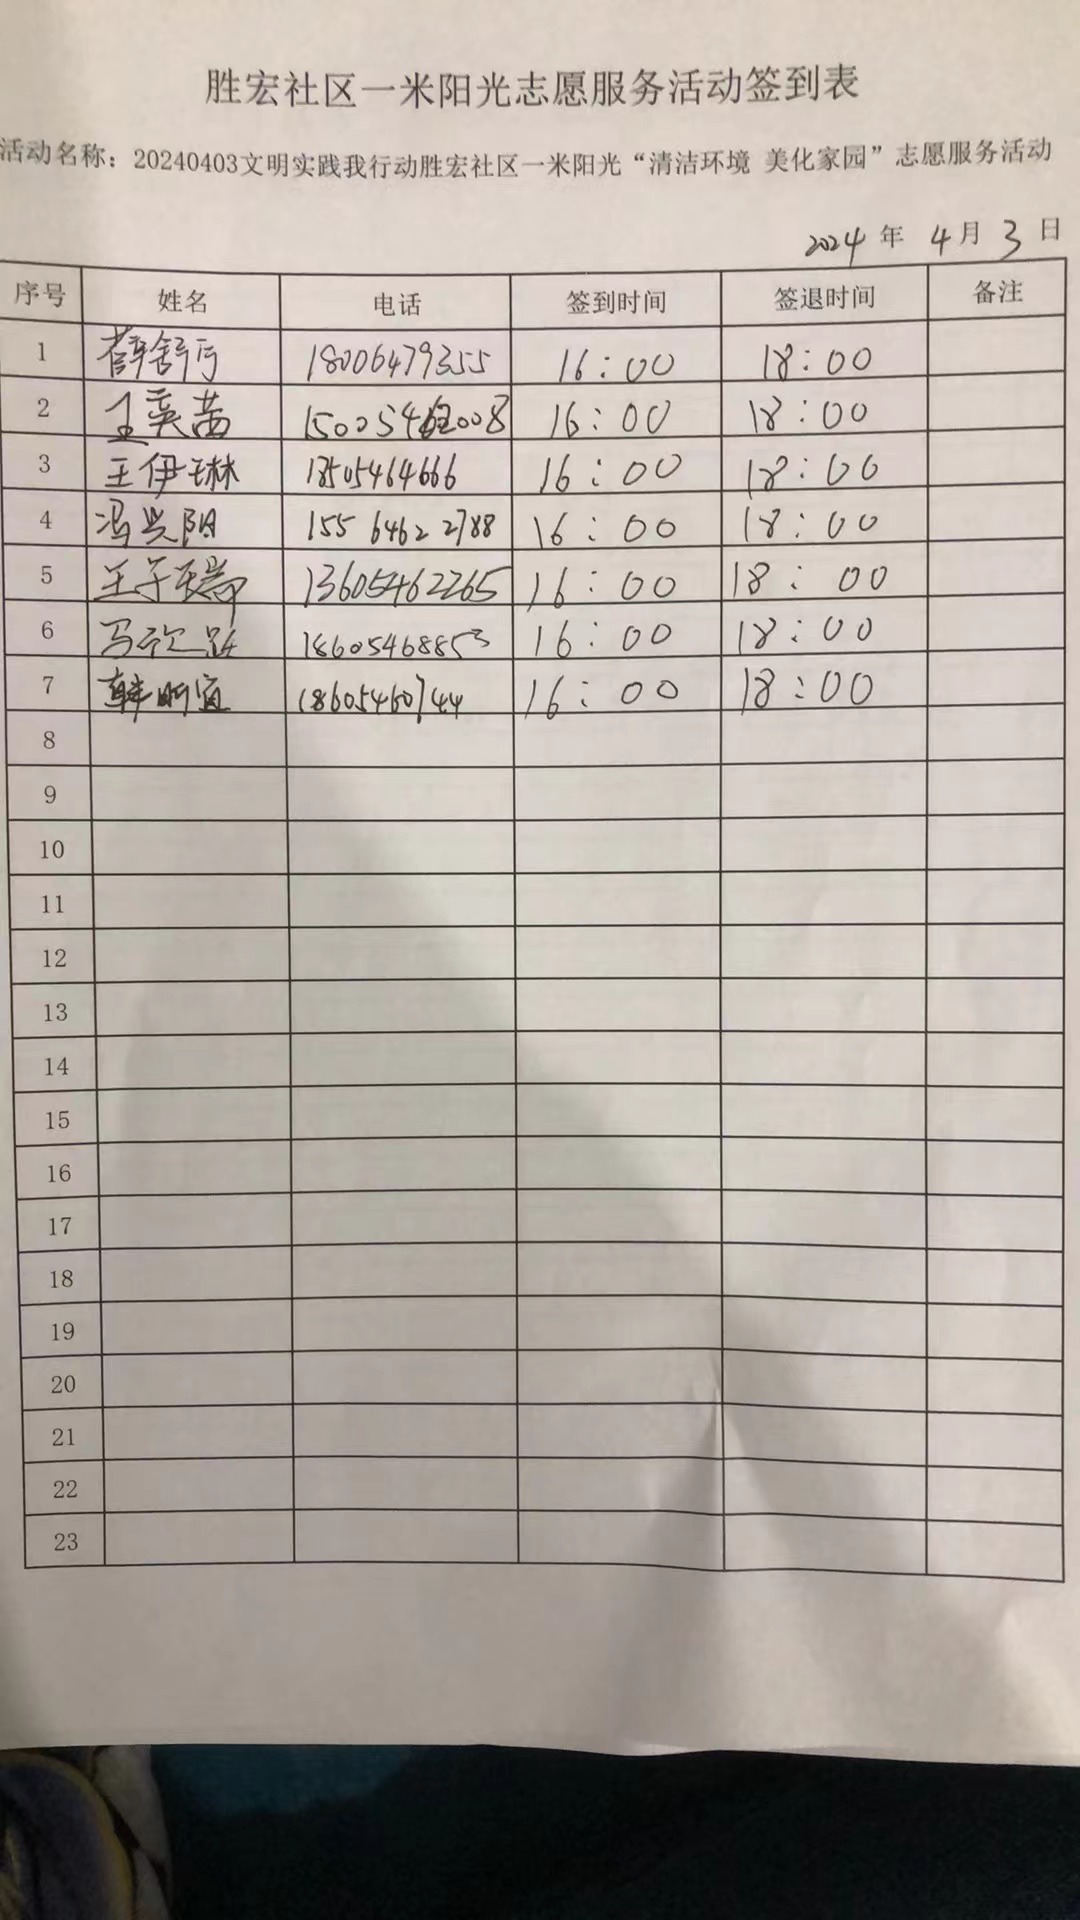 胜宏社区一米阳光志愿服务活动签到表
活动名称：20240403文明实践我行动胜宏社区一米阳光“清洁环境 美化家园”志愿服务活动
2024 年 4 月 3 日
序号 姓名 电话 签到时间 签退时间 备注
1 薛舒丹 18006479355 16:00 18:00
2 王奕茜 16:00 18:00
3 王伊琳 18505464666 16:00 18:00
4 冯兴阳 155 6462 2788 16:00 18:00
5 王子 13605462265 16:00 18:00
6 18605468853 16:00 18:00
7 韩明宜 18605460744 16:00 18:00
8
9
10
11
12
13
14
15
16
17
18
19
20
21
22
23